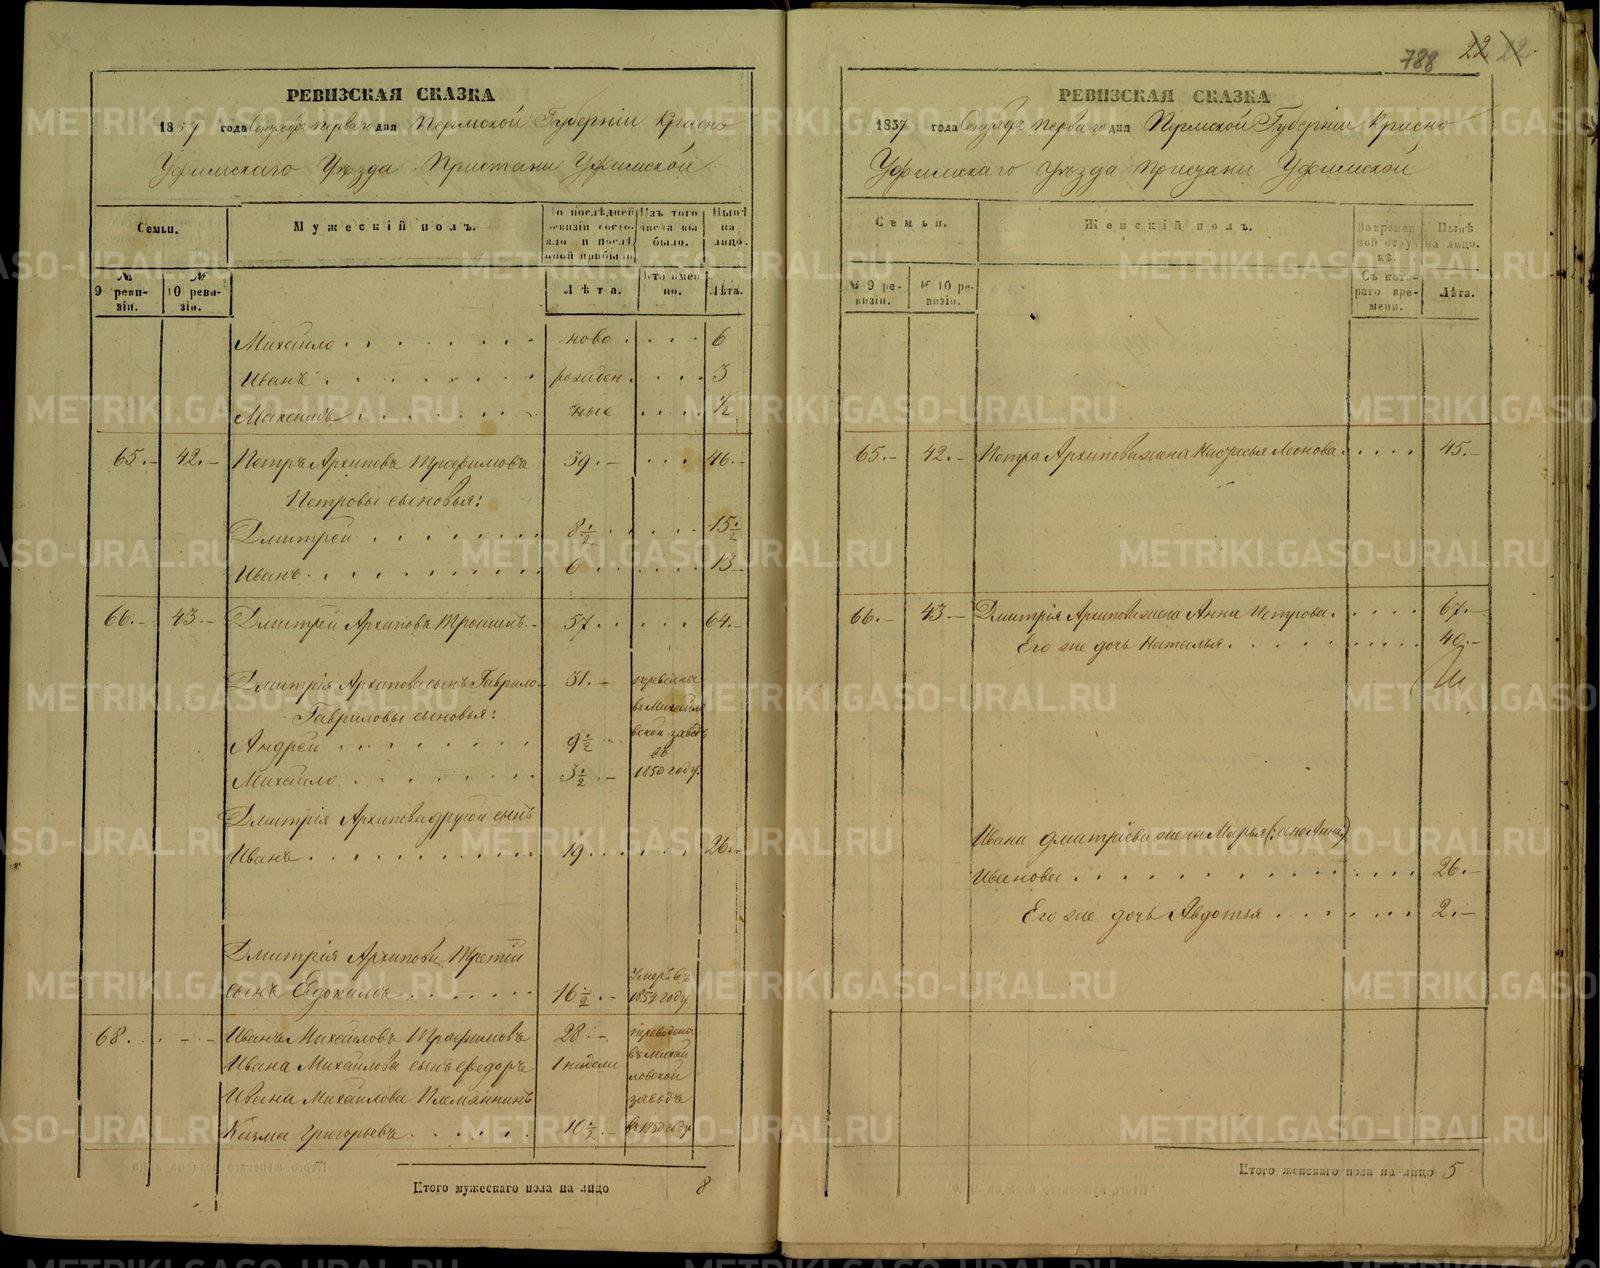 788 22 22.
РЕВИЗСКАЯ СКАЗКА
1857 года Октября перваго дня Пермской Губерніи Красно
Уфимскаго Уѣзда Пристани Уфимской
Семьи. Мужескій полъ. По послѣдней ревизіи состояло и послѣ оной прибыло Изъ того числа выбыло. Нынѣ на лицо.
№ 9 ревизіи. № 10 ревизіи. Лѣта. Кто именно. Лѣта.
Михайло ново 6
Иванъ рожден 3
Максимъ ные ½
65. 42. Петръ Архиповъ Трофимовъ 39. 46.
Петровы сыновья:
Дмитрей 8½ 15½
Иванъ 6 13
66. 43. Дмитрей Архиповъ 57 64.
Дмитрія Архипова сынъ Гаврило 31. переведены
Гавриловы сыновья: въ Михайло
Андрей 9½ вской заводъ
въ
Михайло 3½ 1850 году.
Дмитрія Архипова другой сынъ
Иванъ 19 26.
Дмитрія Архипова Третій
сынъ Евдокимъ 16½ Умеръ въ 1854 году.
68. Иванъ Михайловъ Трофимовъ 28 переведены
Ивана Михайлова сынъ Федоръ 1 недели въ Михай
Ивана Михайлова Племянникъ ловской заводъ
Казма Григорьевъ 10½ въ 1850 году.
Итого мужескаго пола на лицо 8
РЕВИЗСКАЯ СКАЗКА
1857 года Октября перваго дня Пермской Губерніи Красно
Уфимскаго Уѣзда Пристани Уфимской
Семьи. Женскій полъ. Во временной отлучкѣ. Нынѣ на лицо.
№ 9 ревизіи. № 10 ревизіи. Съ котораго времени. Лѣта.
65. 42. Петра Архипова жена Настасья Леонова 45.
66. 43 Дмитрія Архипова жена Анна Петрова 67.
Его же дочь Наталья 40.
Ивана Дмитріева жена Марья (: она Анна)
Иванова 26.
Его же дочь Авдотья 2.
Итого женскаго пола на лицо 5
METRIKI.GASO-URAL.RU